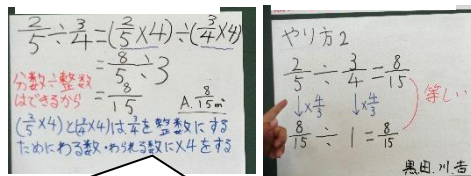 2/5÷3/4=(2/5×4)÷(3/4×4)
=8/5÷3
=8/15
分数÷整数
はできるから
A. 8/15㎡
(2/5×4)と(3/4×4)は3/4を整数にする
ためにわる数・わられる数に×4をする
やり方2
2/5÷3/4=8/15
↓×4/3 ↓×4/3
等しい
8/15÷1=8/15
黒田.川合